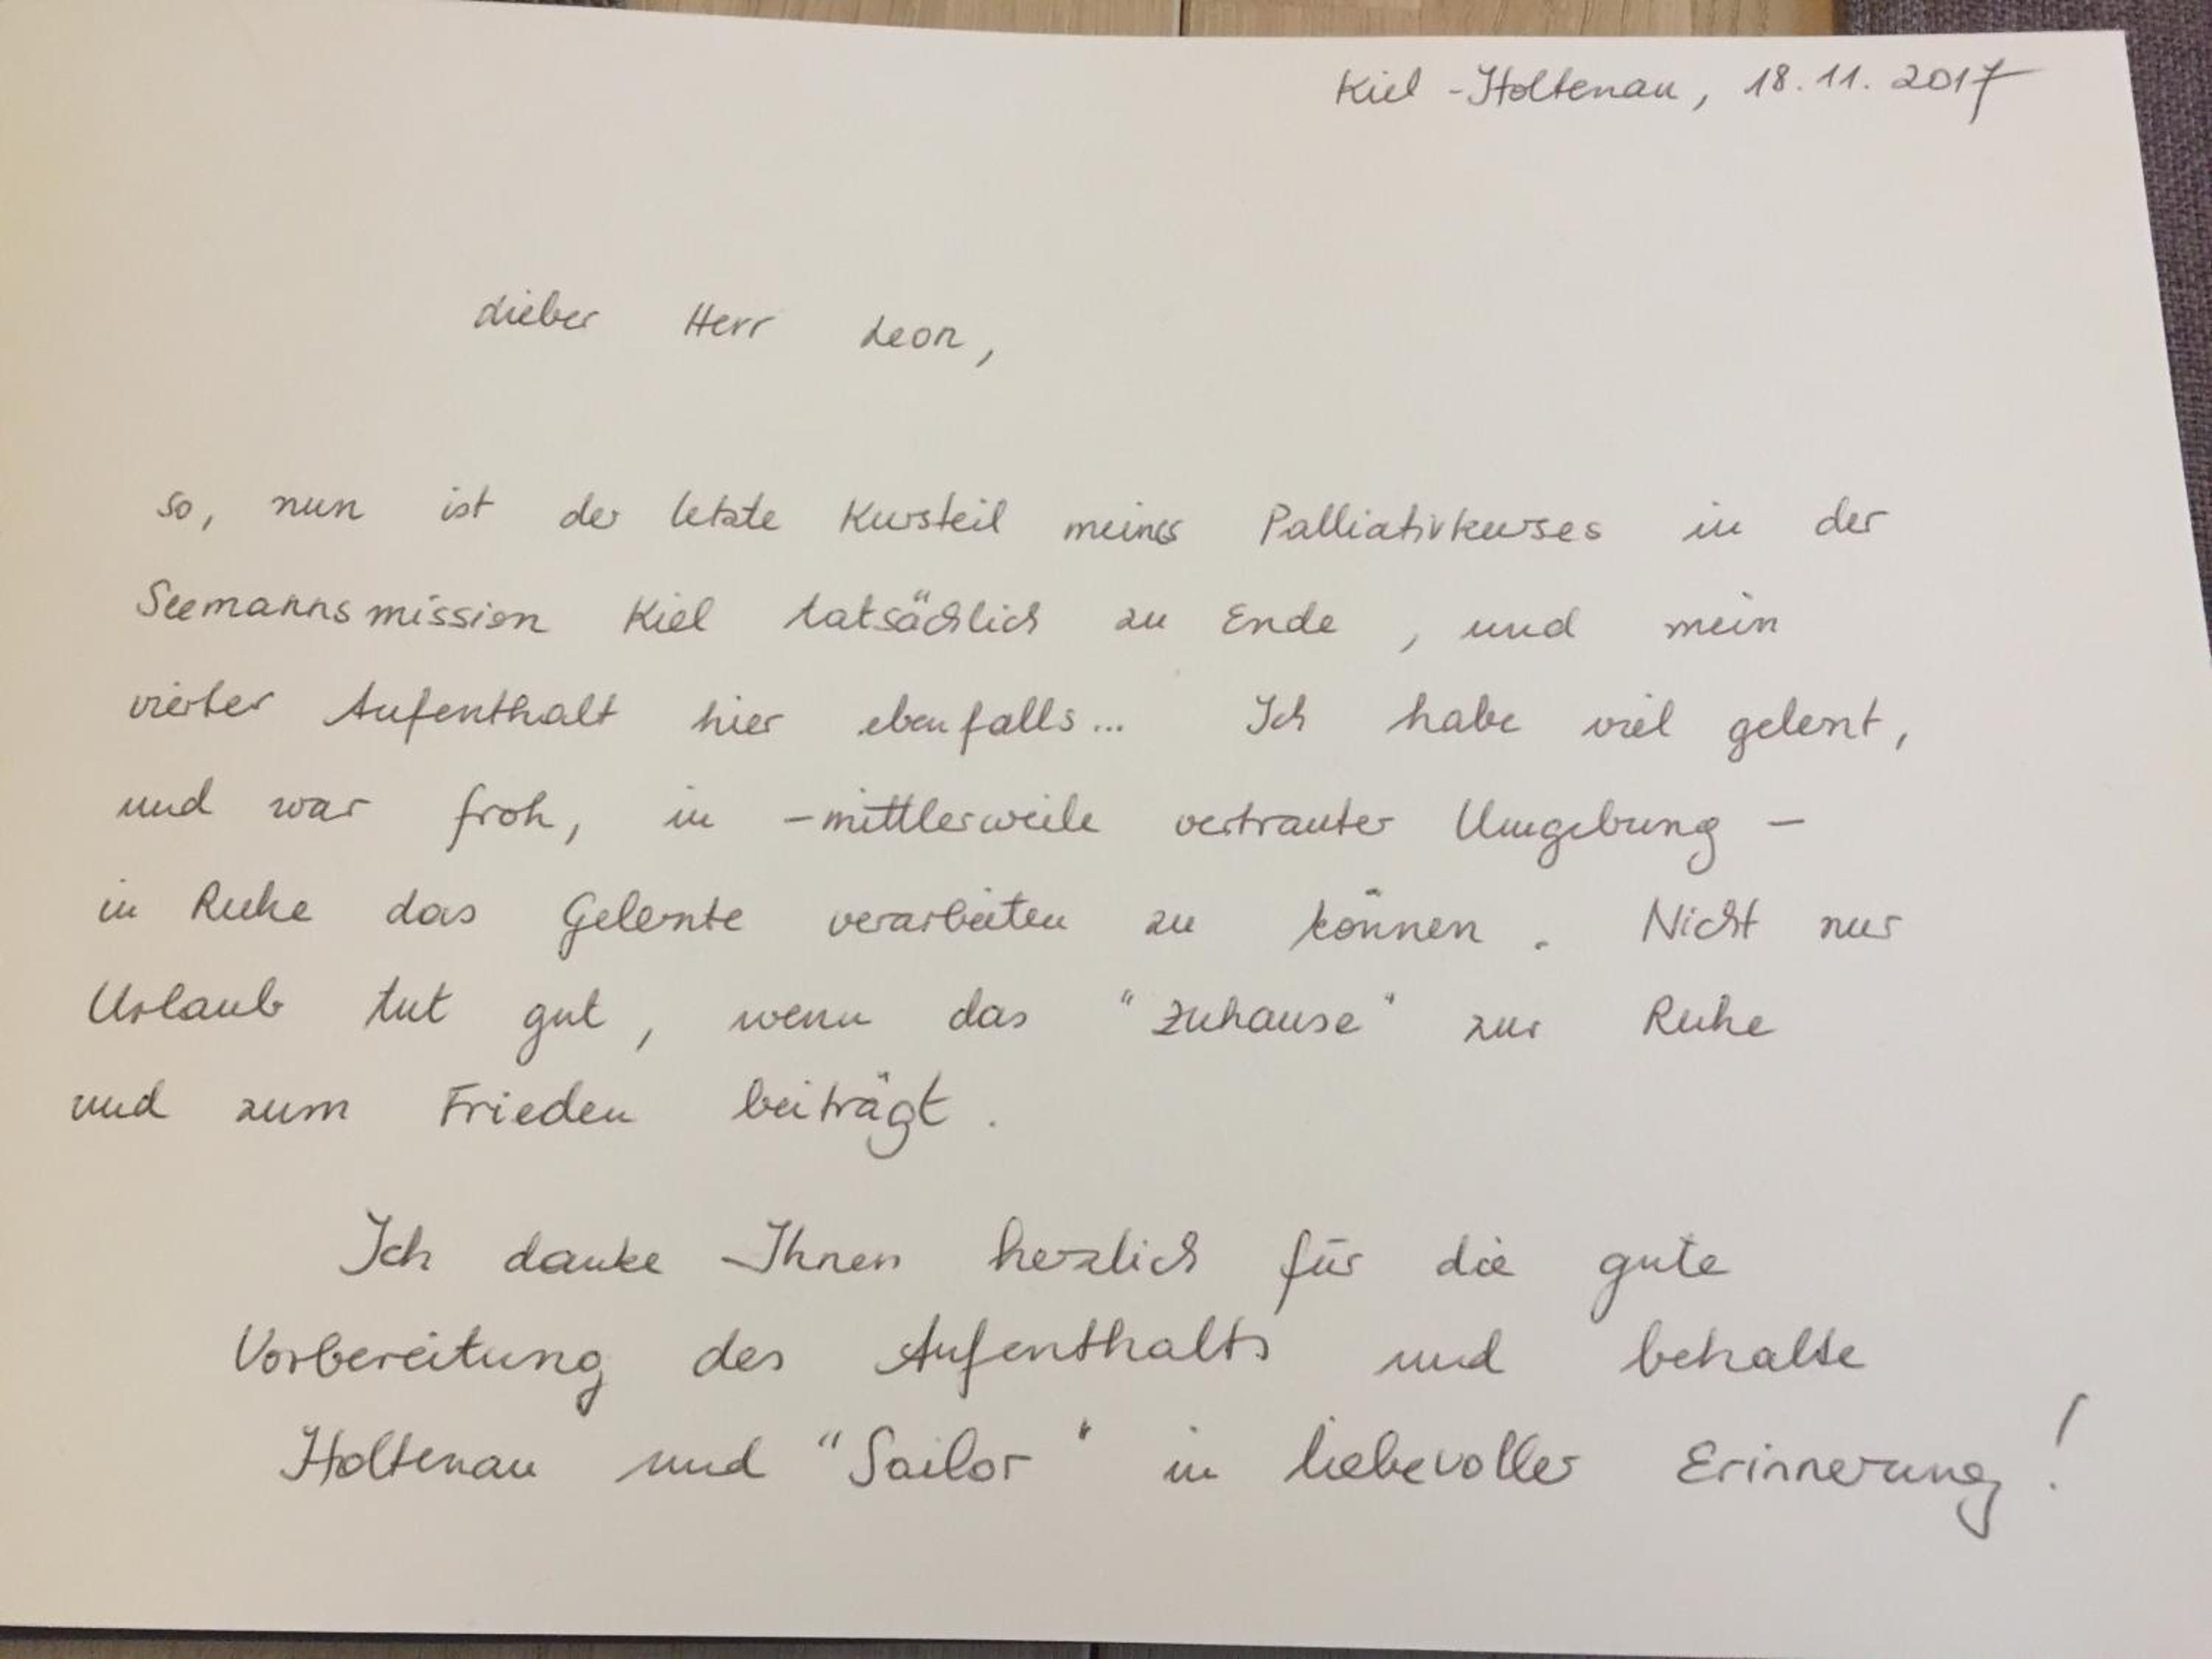 Kiel-Holtenau, 18.11.2017
Lieber Herr Leon,
so, nun ist der letzte Kursteil meines Palliativkurses in der
Seemannsmission Kiel tatsächlich zu Ende, und mein
vierter Aufenthalt hier ebenfalls... Ich habe viel gelernt,
und war froh, in - mittlerweile vertrauter Umgebung -
in Ruhe das Gelernte verarbeiten zu können. Nicht nur
Urlaub tut gut, wenn das "Zuhause" zur Ruhe
und zum Frieden beiträgt.
Ich danke Ihnen herzlich für die gute
Vorbereitung des Aufenthalts und behalte
Holtenau und "Sailor" in liebevoller Erinnerung!